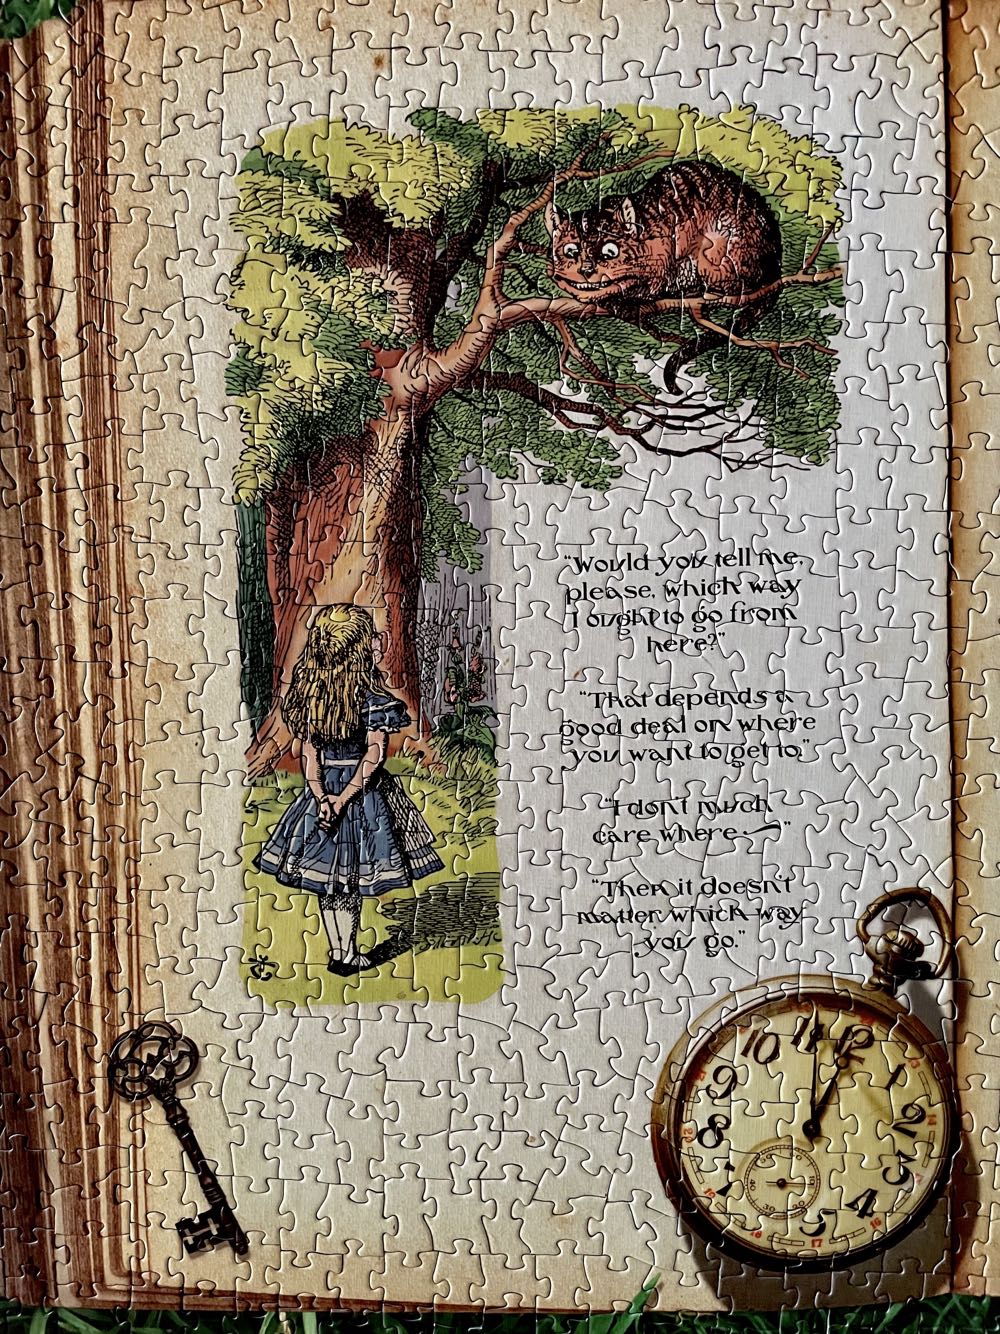 "Would you tell me,
please, which way
I ought to go from
here?"
"That depends a
good deal on where
you want to get to."
"I don't much
care where—"
"Then it doesn't
matter which way
you go."
10 11 12 1 2 3 4 5 7 8 9
13 14 16 17 18 19 20